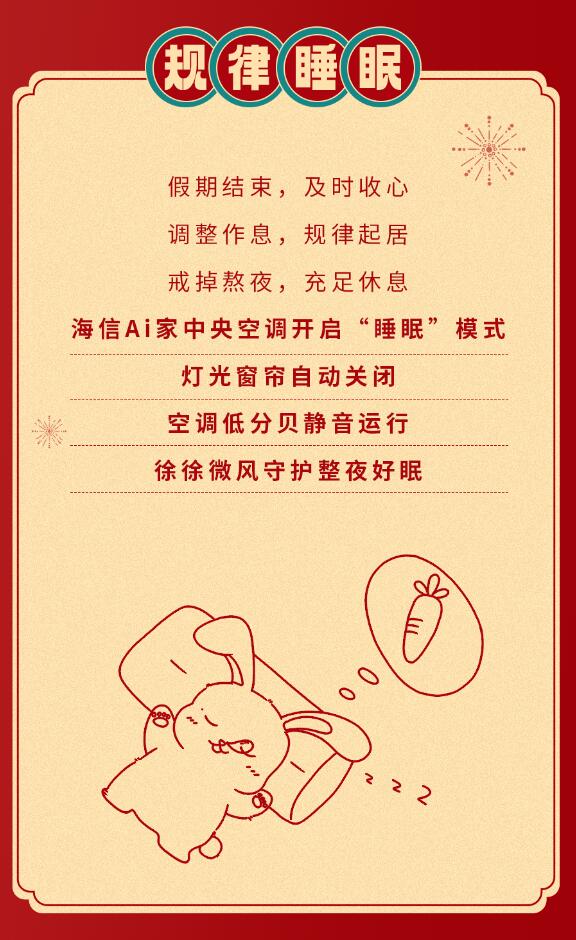 规律睡眠
假期结束，及时收心
调整作息，规律起居
戒掉熬夜，充足休息
海信Ai家中央空调开启“睡眠”模式
灯光窗帘自动关闭
空调低分贝静音运行
徐徐微风守护整夜好眠
z z z